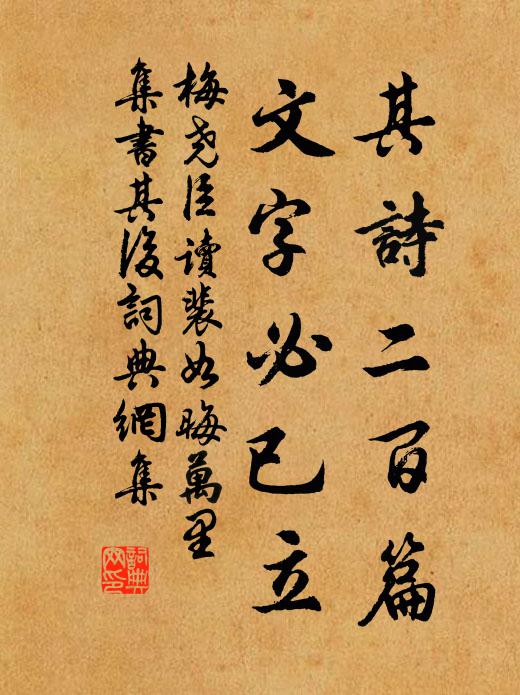 其詩二百篇
文字必已立
梅堯臣讀裴如晦萬里
集書其後詞典網集
詞典
网印